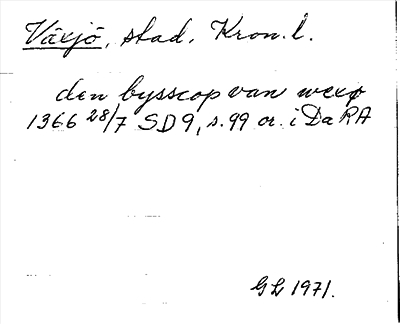 Växjö, stad, Kron. l.
den bysscop van wexø
1366 28/7 SD 9, s. 99 or. i Da RA
GL 1971.